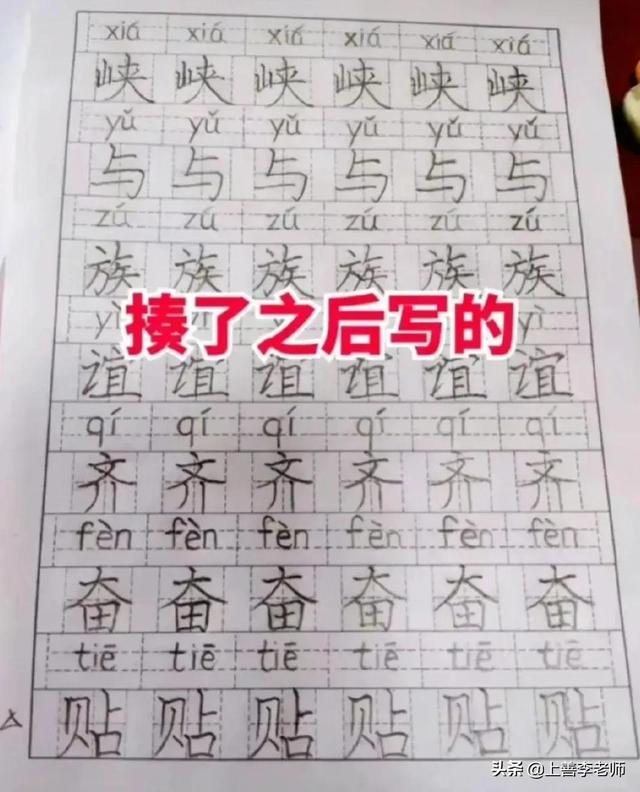 xiá xiá xiá xiá xiá xiá
峡 峡 峡 峡 峡 峡
yǔ yǔ yǔ yǔ yǔ yǔ
与 与 与 与 与 与
zú zú zú zú zú zú
族 族 族 族 族 族
揍了之后写的
yì yì
谊 谊 谊 谊 谊 谊
qí qí qí qí qí qí
齐 齐 齐 齐 齐 齐
fèn fèn fèn fèn fèn fèn
奋 奋 奋 奋 奋 奋
tiē tiē tiē tiē tiē tiē
贴 贴 贴 贴 贴 贴
头条 @上善李老师